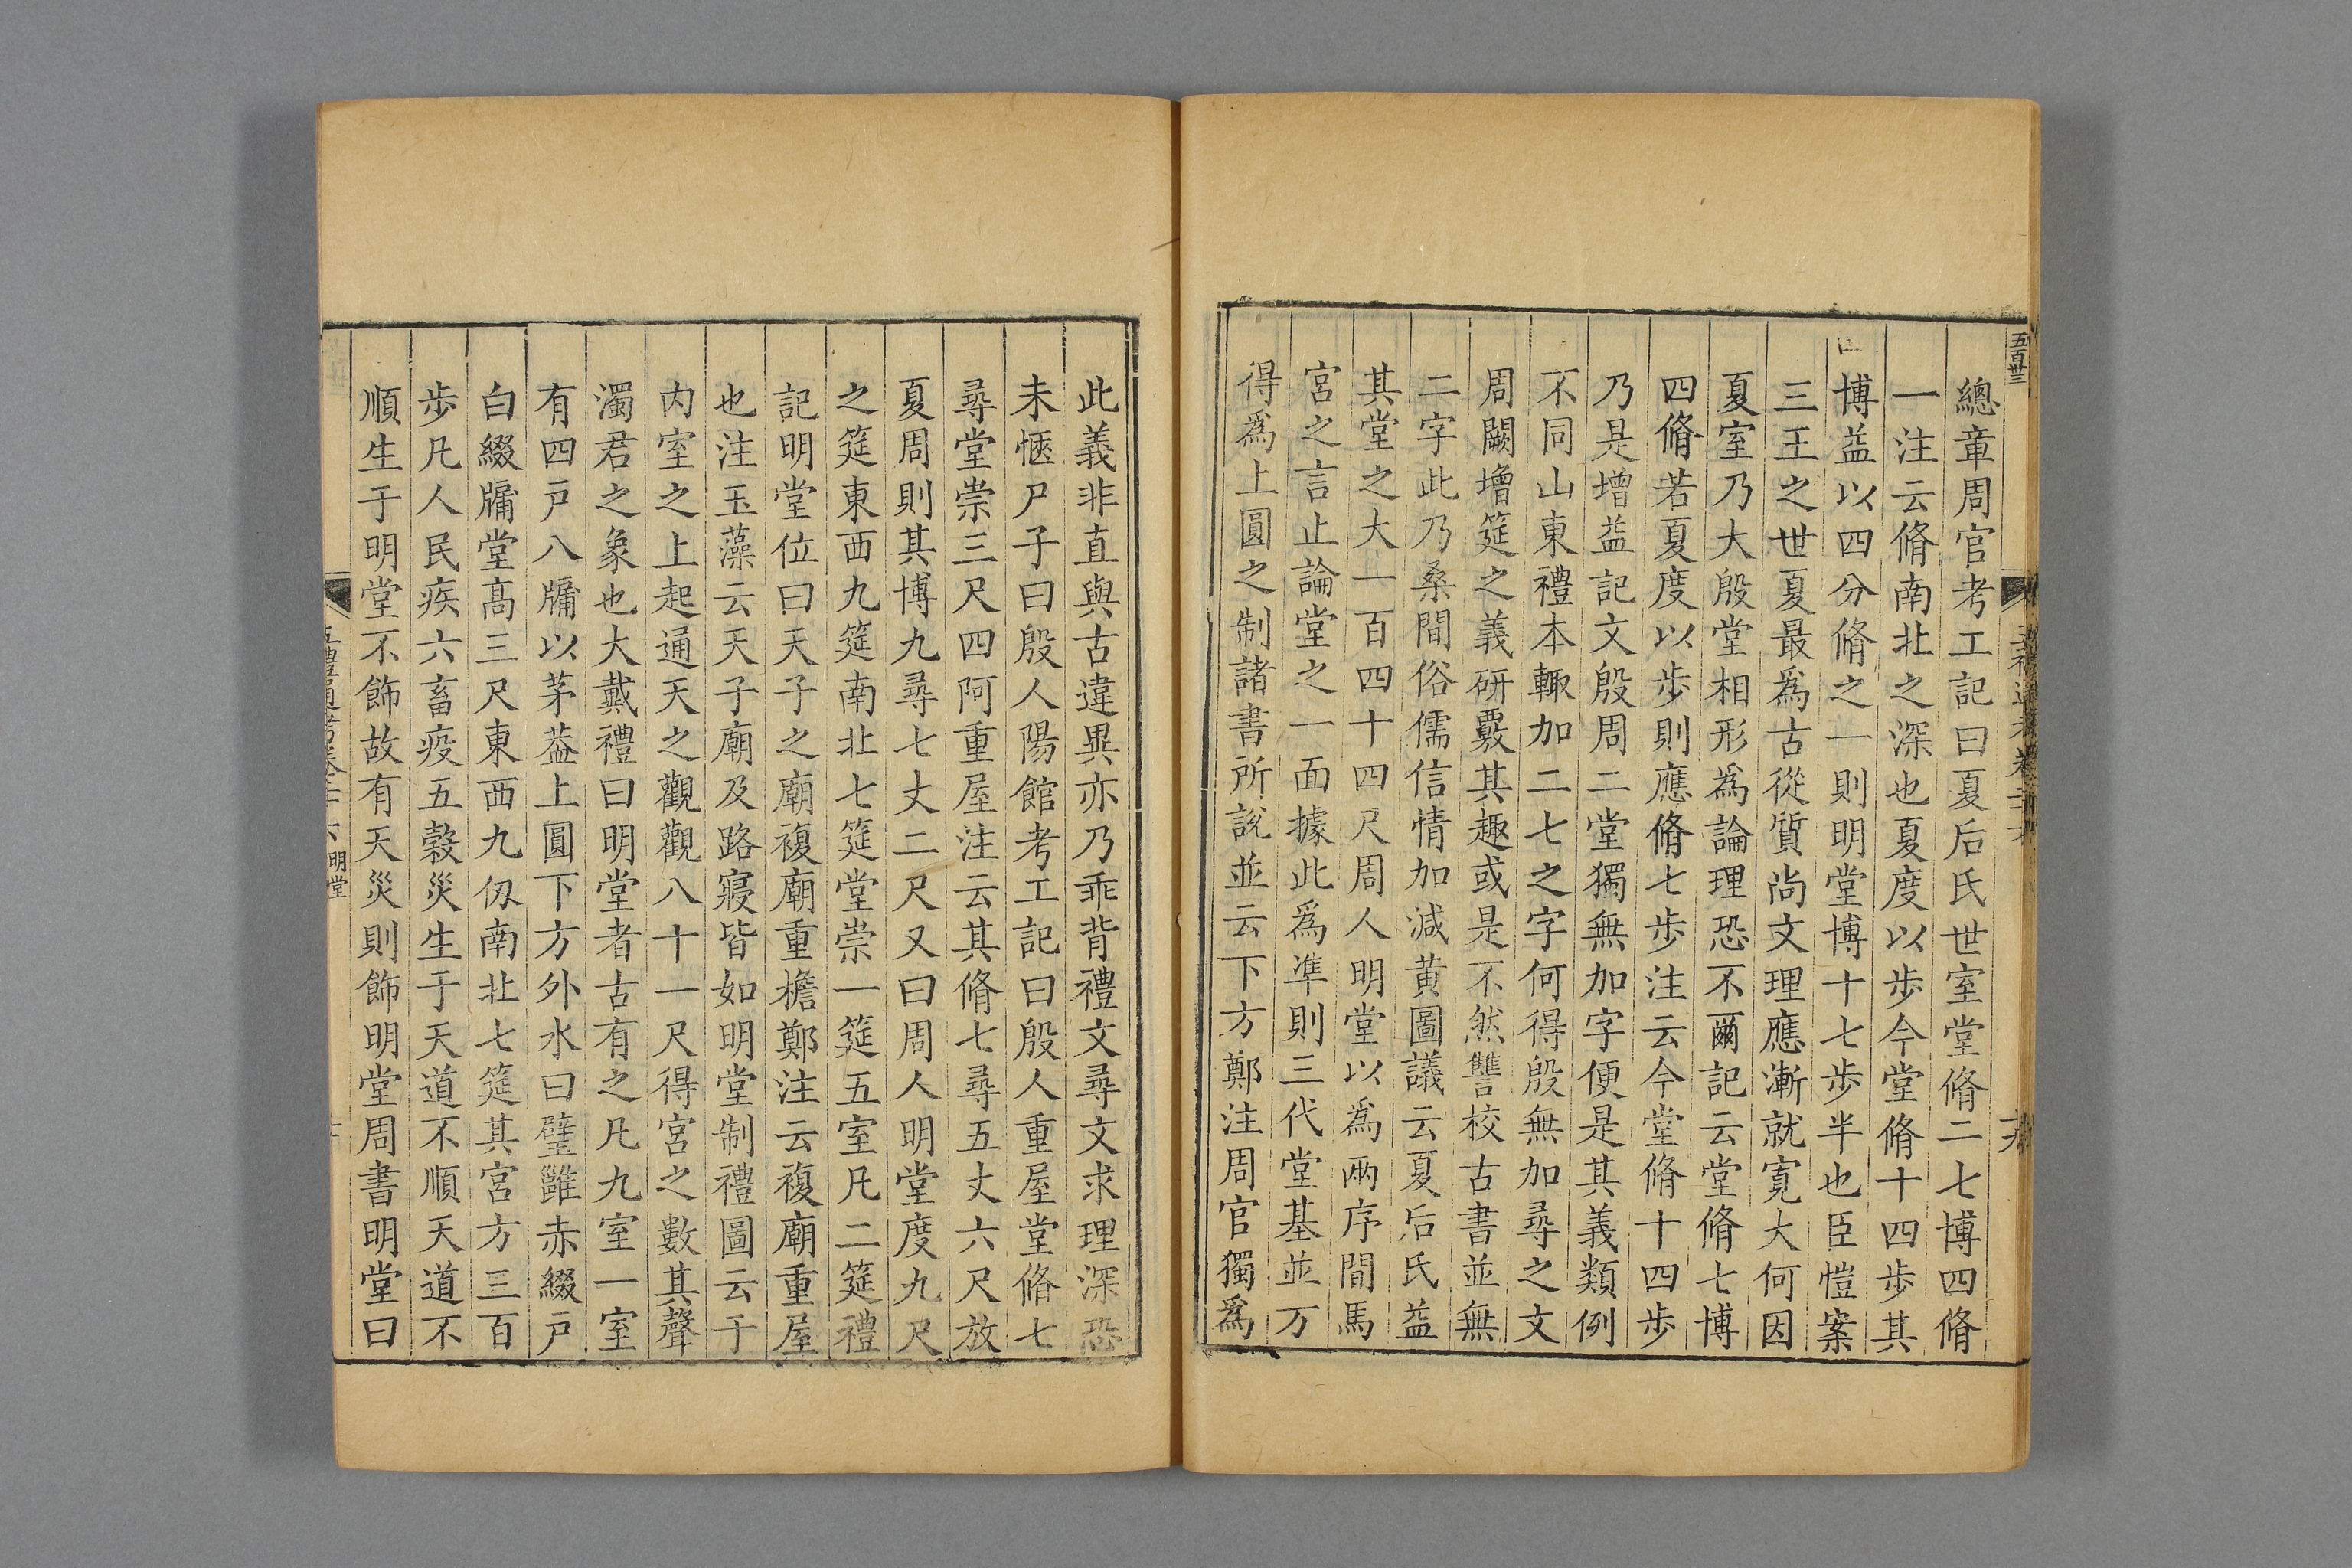 五百卅三
總章周官考工記曰夏后氏世室堂脩二七博四脩
一注云脩南北之深也夏度以步今堂脩十四步其
博益以四分脩之一則明堂博十七步半也臣愷案
三王之世夏最爲古從質尚文理應漸就寬大何因
夏室乃大殷堂相形爲論理恐不爾記云堂脩七博
四脩若夏度以步則應脩七步注云今堂脩十四步
乃是增益記文殷周二堂獨無加字便是其義類例
不同山東禮本輙加二七之字何得殷無加尋之文
周闕增筵之義研覈其趣或是不然讐校古書並無
二字此乃桑間俗儒信情加減黄圖議云夏后氏益
其堂之大一百四十四尺周人明堂以爲兩序間馬
宮之言止論堂之一面據此爲準則三代堂基並方
得爲上圓之制諸書所說並云下方鄭注周官獨爲
此義非直與古違異亦乃乖背禮文尋文求理深恐
未愜尸子曰殷人陽館考工記曰殷人重屋堂脩七
尋堂崇三尺四阿重屋注云其脩七尋五丈六尺放
夏周則其博九尋七丈二尺又曰周人明堂度九尺
之筵東西九筵南北七筵堂崇一筵五室凡二筵禮
記明堂位曰天子之廟複廟重檐鄭注云複廟重屋
也注玉藻云天子廟及路寢皆如明堂制禮圖云于
内室之上起通天之觀觀八十一尺得宮之數其聲
濁君之象也大戴禮曰明堂者古有之凡九室一室
有四戶八牖以茅葢上圓下方外水曰璧雝赤綴戶
白綴牖堂高三尺東西九仭南北七筵其宮方三百
步凡人民疾六畜疫五穀災生于天道不順天道不
順生于明堂不飾故有天災則飾明堂周書明堂曰
五禮通考卷二十六 明堂